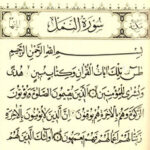 سورة النمل
بسم الله الرحمن الرحيم
طس تلك ءايات القرءان وكتاب مبين هدى
وبشرى للمؤمنين الذين يقيمون الصلوة ويؤتون
الزكوة وهم بالآخرة هم يوقنون إن الذين لا يؤمنون بالآخرة
زينا لهم أعمالهم فهم يعمهون أولئك الذين لهم